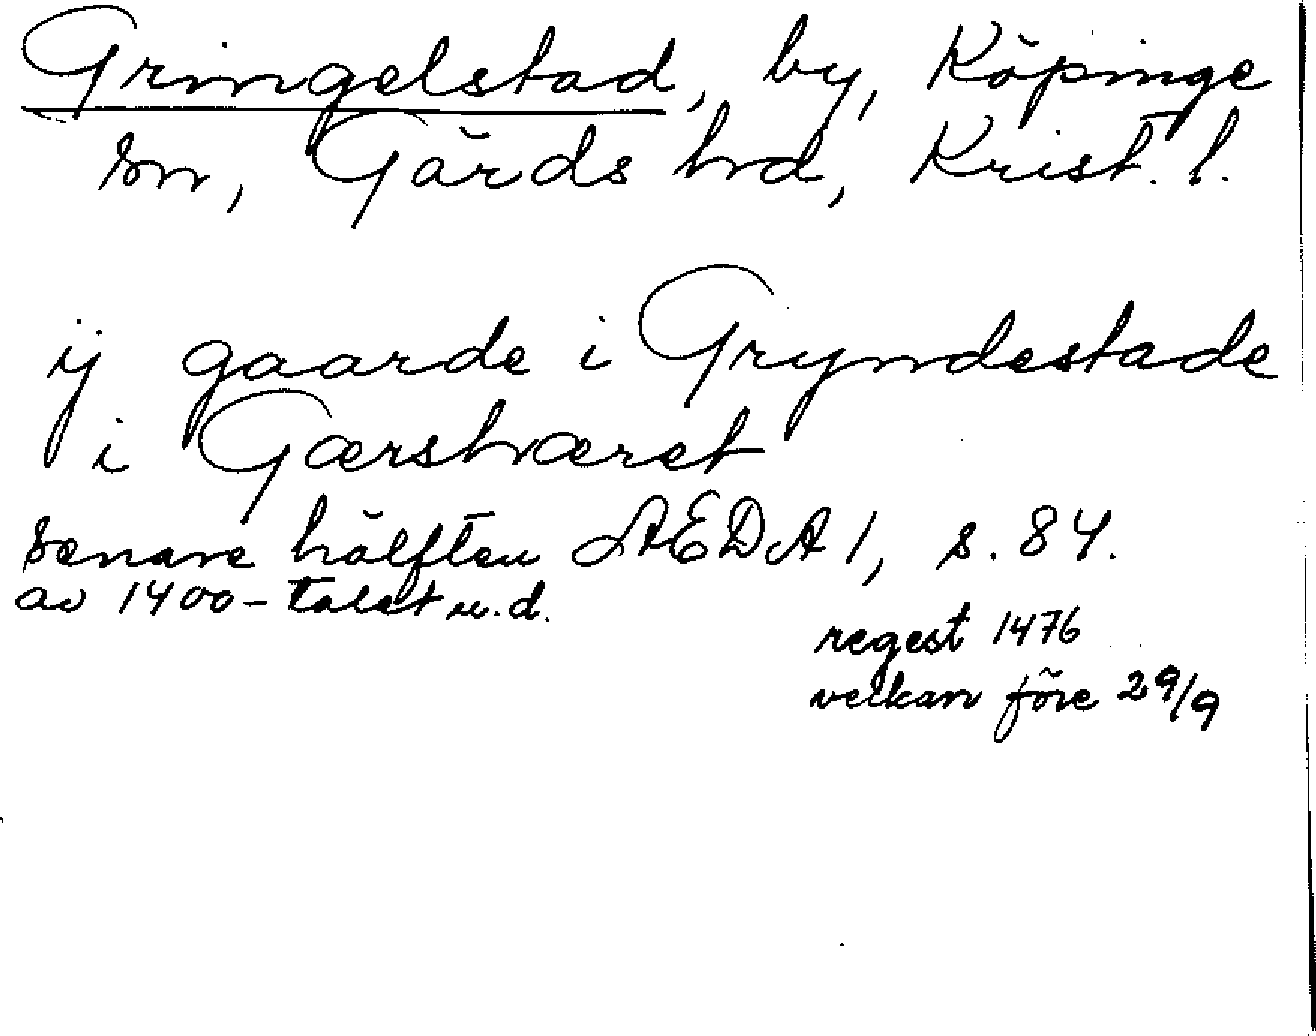 Gringelstad, by, Köpinge
sn, Gärds hd, Krist. l.
ij gaarde i Gryndestade
i Gærshæret
senare hälften ÆDA 1, s. 84.
av 1400-talet u.d.
regest 1476
verkan före 29/9